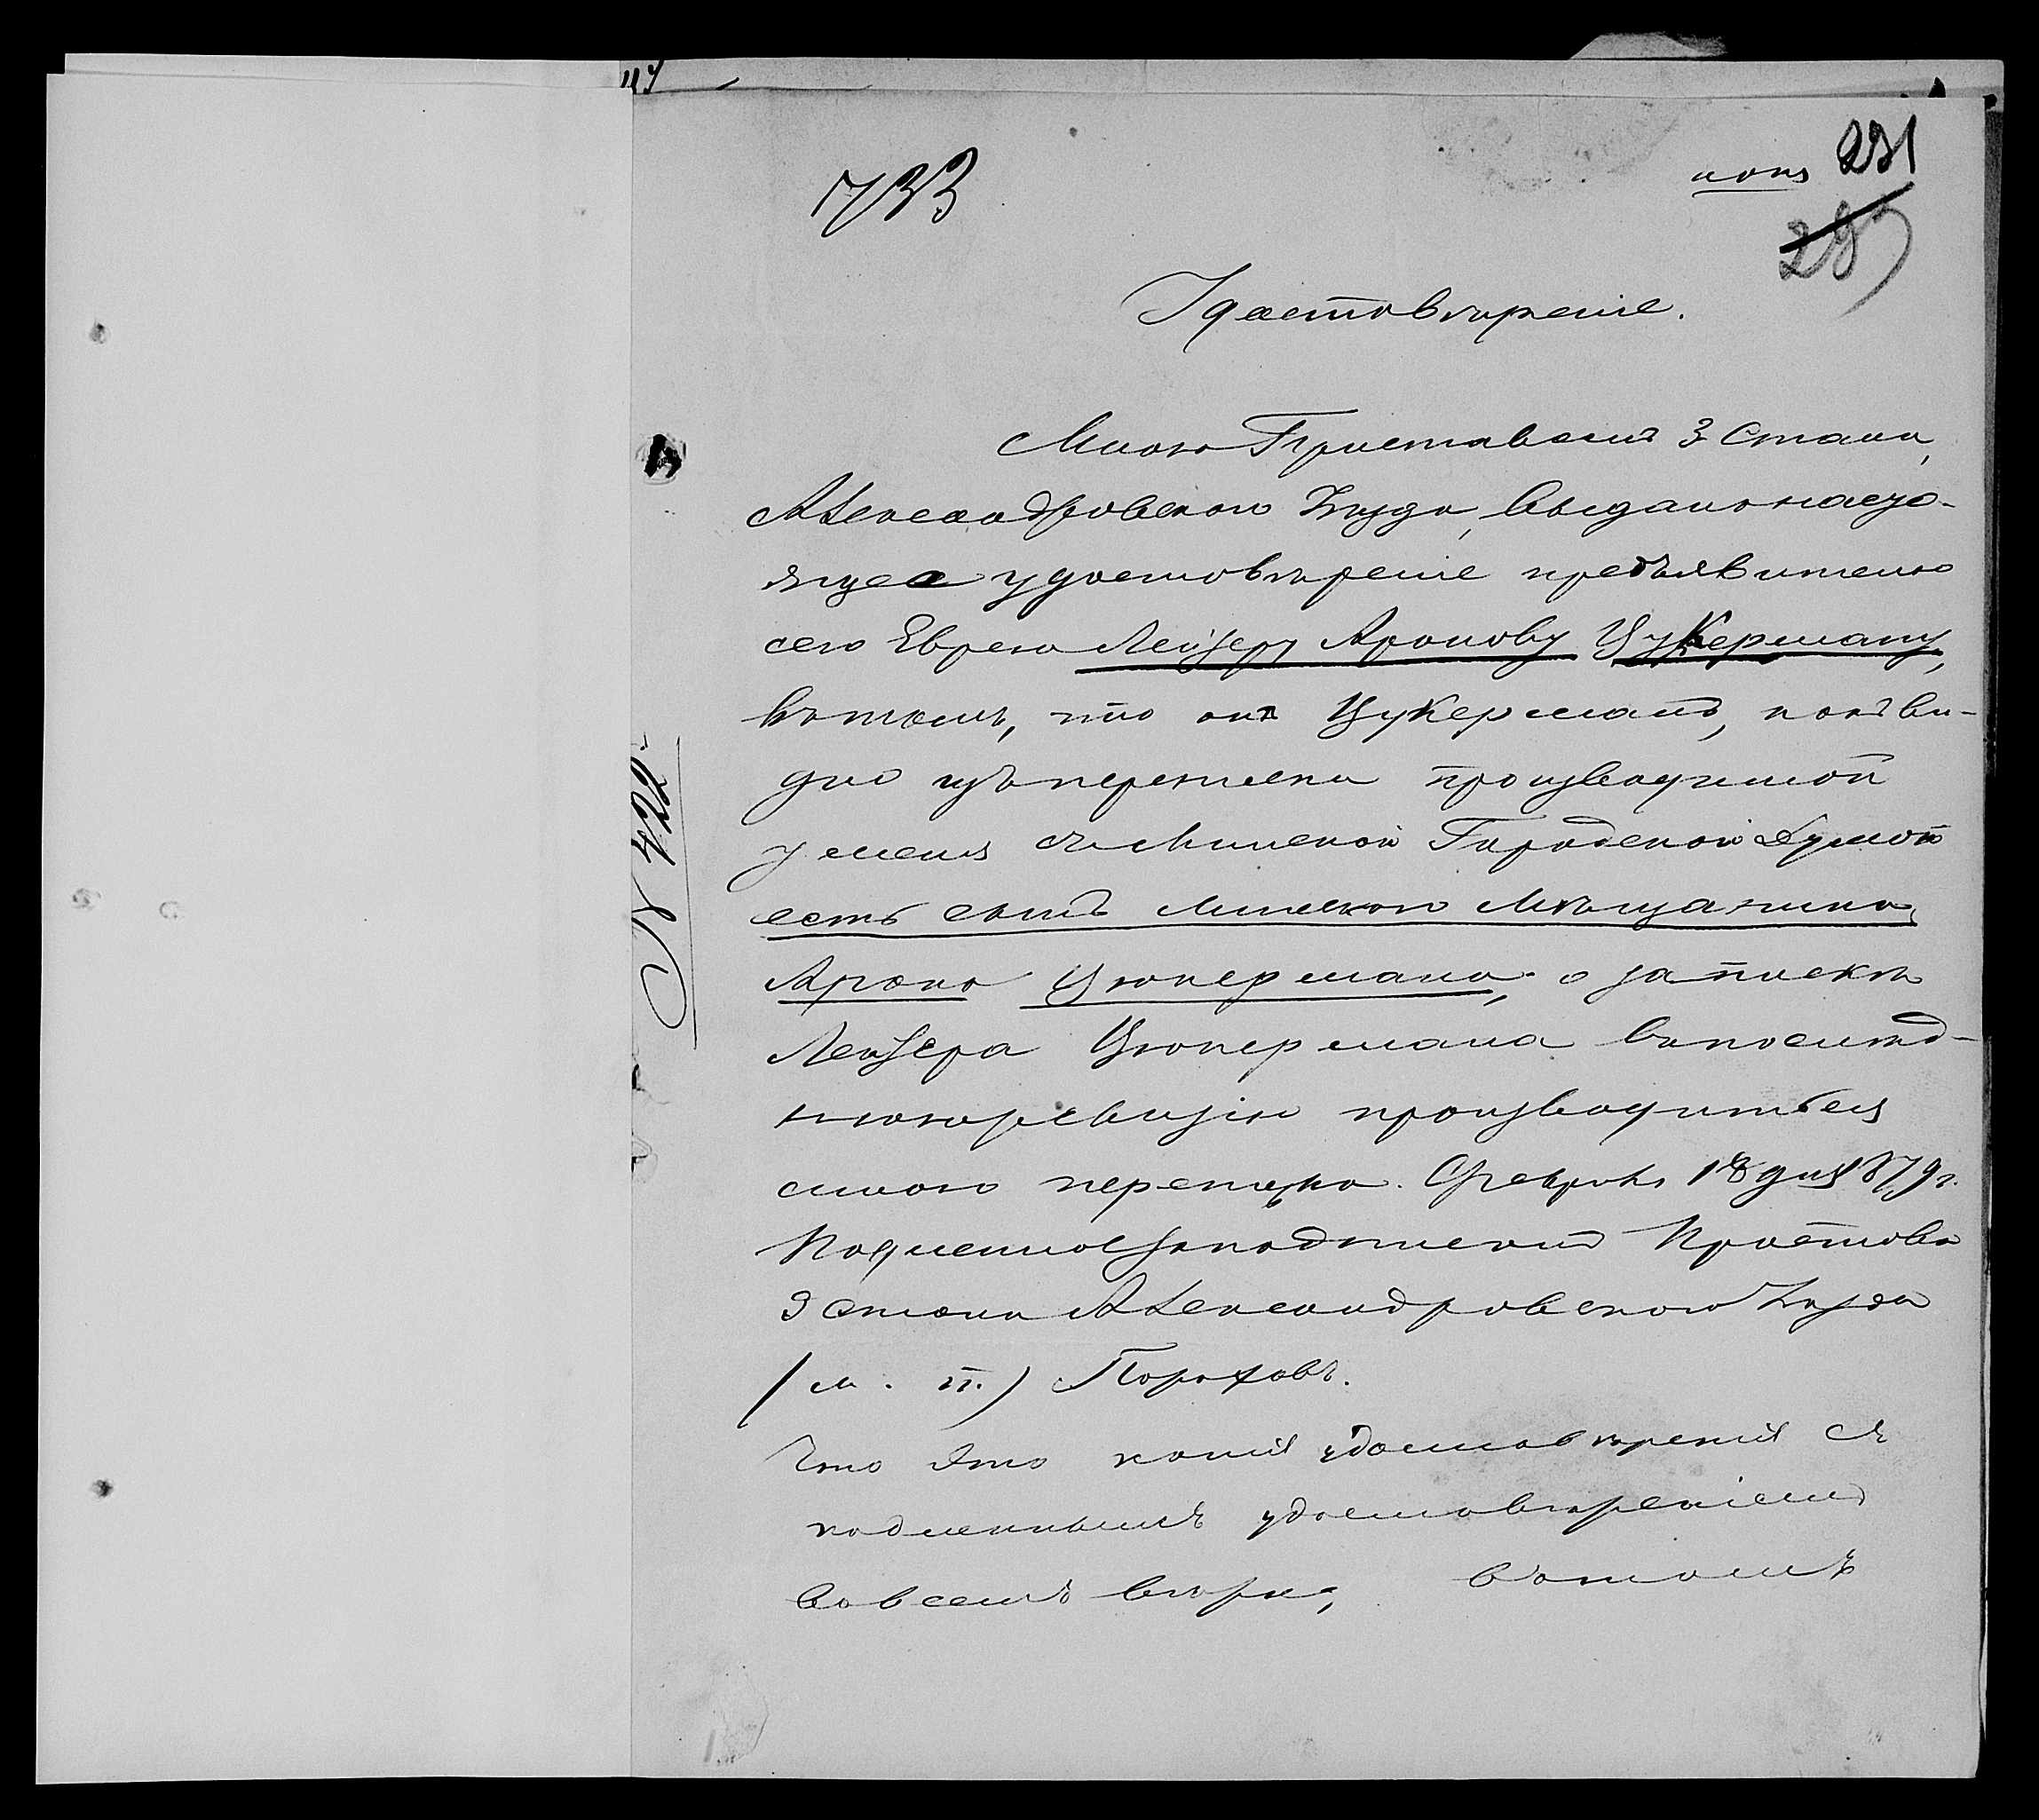 733
копія 231
287
Удостовѣреніе.
Мною Приставомъ 3 Стана,
Александровскаго Уѣзда, выдано насто-
ящее удостовѣреніе предъявителю
сего Еврею Лейзеру Аронову Цукерману,
въ томъ, что онъ Цукерманъ, какъ ви-
дно изъ переписки производимой
у меня съ Минской Городской Думой
есть сынъ Минскаго Мѣщанина
Арона Цюкермана; о запискѣ
Лейзера Цюкермана въ послѣд-
нюю ревизію производиться
мною переписка. Февраля 18 дня 1879 г.
Подлинное за подписомъ Пристава
3 стана Александровского Уѣзда
(м. п.) Пороховъ.
Что это копія удостовѣренія съ
подлиннымъ удостовѣреніемъ
во всемъ вѣрна, въ томъ
№ 422